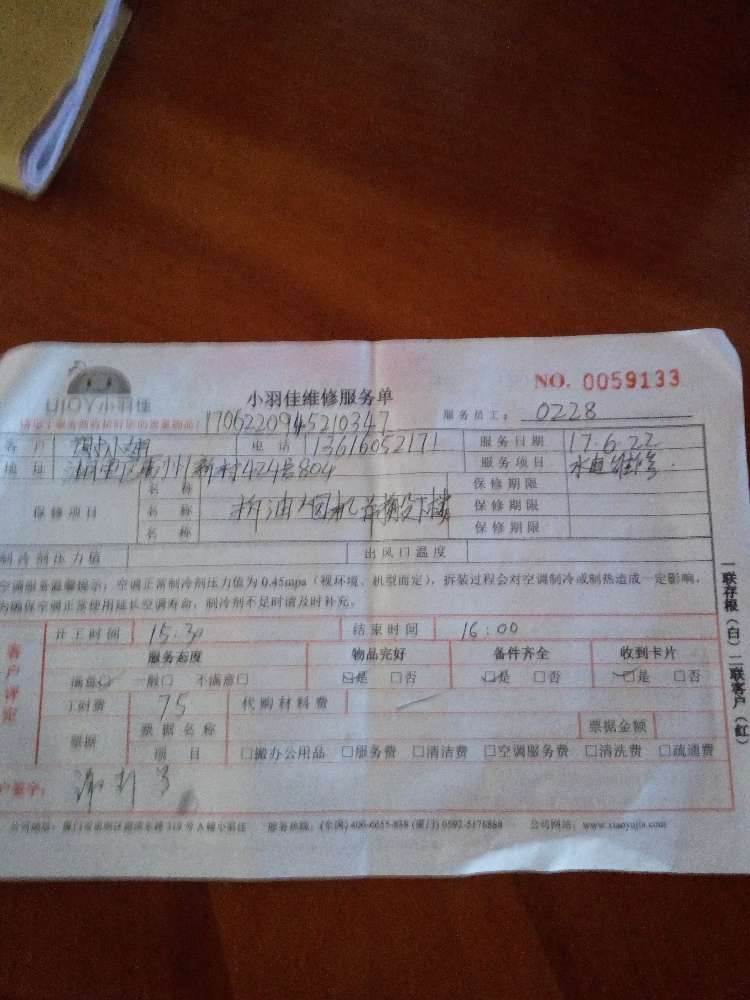 UJOY小羽佳
小羽佳维修服务单
NO. 0059133
1706220945210347
服务员工: 0228
客户 电话 13616052171 服务日期 17.6.22
地址 新村424号804 服务项目 水电维修
保修项目 名称 拆油烟机并搬下楼 保修期限
名称 保修期限
名称 保修期限
制冷剂压力值 出风口温度
空调服务温馨提示：空调正常制冷剂压力值为0.45mpa（视环境、机型而定），拆装过程会对空调制冷或制热造成一定影响，
为确保空调正常使用延长空调寿命，制冷剂不足时请及时补充。
客户评定
开工时间 15:30 结束时间 16:00
服务态度 物品完好 备件齐全 收到卡片
满意□ 一般□ 不满意□ □是 □否 □是 □否 □是 □否
工时费 75 代购材料费
票据 票据名称 票据金额
项目 □搬办公用品 □服务费 □清洁费 □空调服务费 □清洗费 □疏通费
客户签字:
服务热线: (全国) 400-6655-888 (厦门) 0592-5176888 公司网站: www.xiaoyujia.com
一联存根（白）二联客户（红）